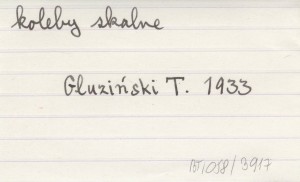 koleby skalne
Gluziński T. 1933
BT1058/3917